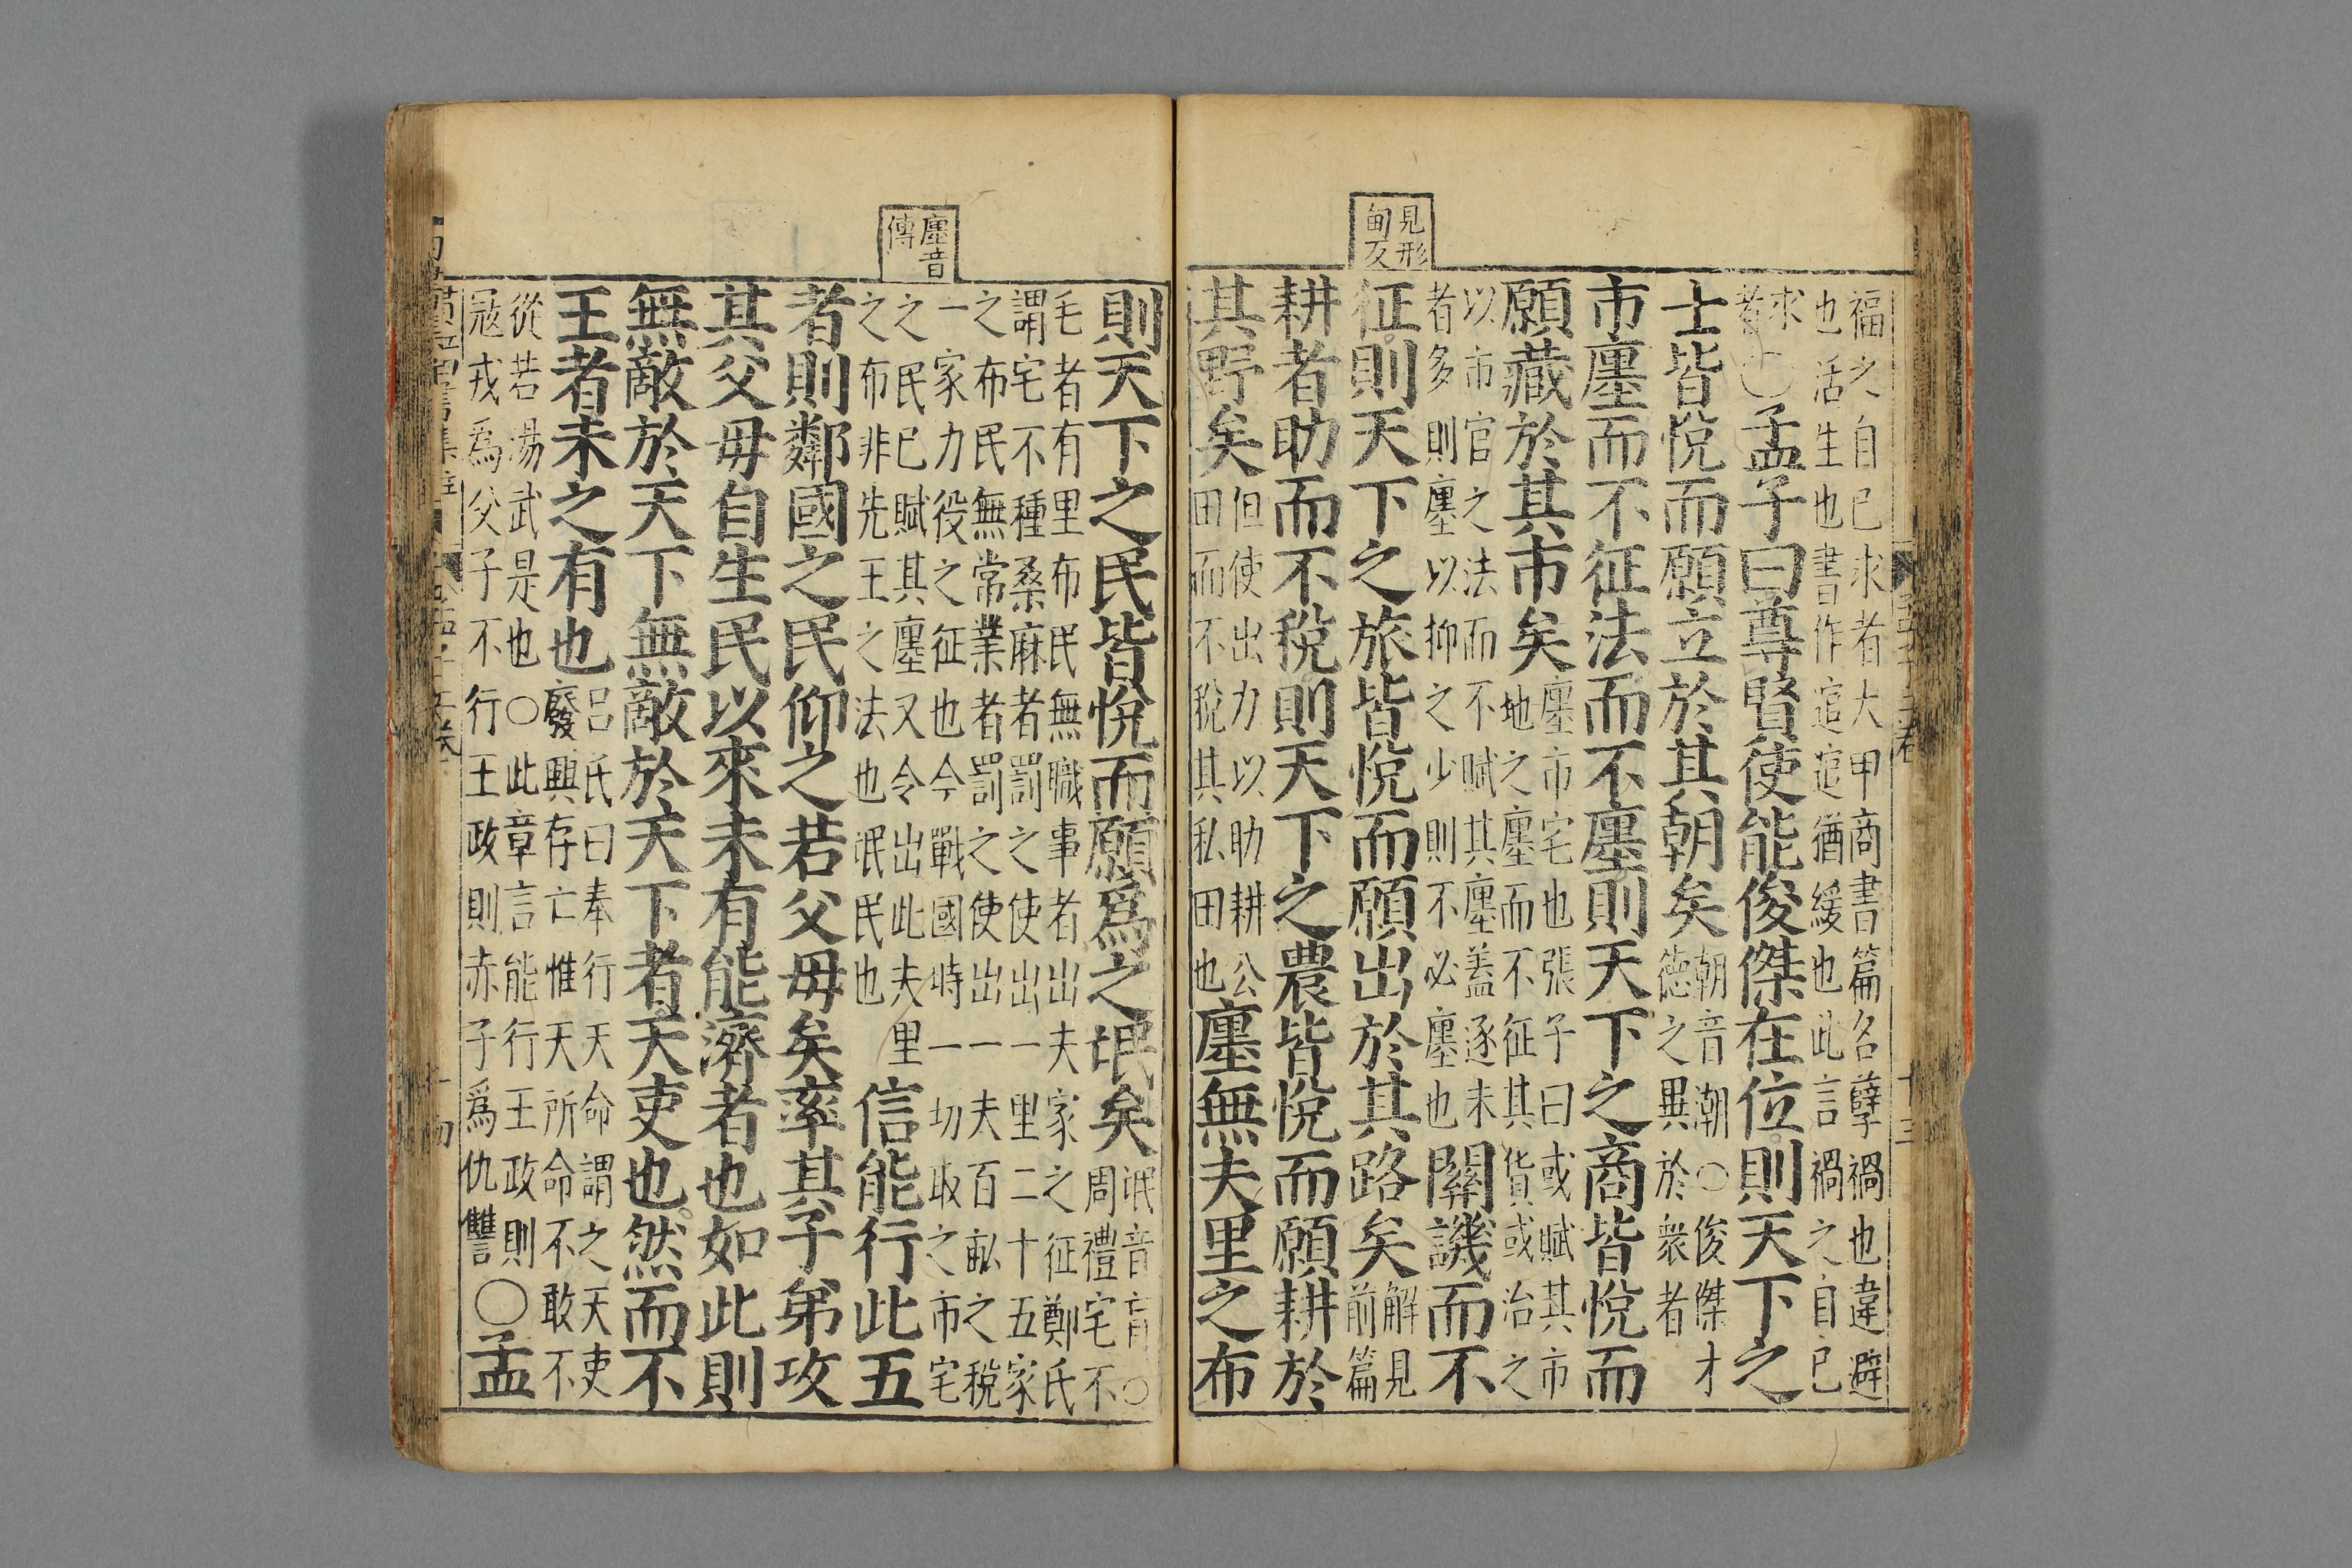 見形
甸反
福之自已求者大甲商書篇名孽禍也違避
也活生也書作逭逭猶緩也此言禍之自已
求者○孟子曰尊賢使能俊傑在位則天下之
士皆悅而願立於其朝矣朝音潮○俊傑才德之異於衆者
市廛而不征法而不廛則天下之商皆悅而
願藏於其市矣廛市宅也張子曰或賦其市地之廛而不征其貨或治之
以市官之法而不賦其廛蓋逐末者多則廛以抑之少則不必廛也關譏而不
征則天下之旅皆悅而願出於其路矣解見前篇
耕者助而不稅則天下之農皆悅而願耕於
其野矣但使出力以助耕公田而不稅其私田也廛無夫里之布
廛音
傳
則天下之民皆悅而願爲之氓矣氓音盲○周禮宅不
毛者有里布民無職事者出夫家之征鄭氏
謂宅不種桑麻者罰之使出一里二十五家
之布民無常業者罰之使出一夫百畝之稅
一家力役之征也今戰國時一切取之市宅
之民已賦其廛又令出此夫里之布非先王之法也氓民也信能行此五
者則鄰國之民仰之若父母矣率其子弟攻
其父毋自生民以來未有能濟者也如此則
無敵於天下無敵於天下者天吏也然而不
王者未之有也呂氏曰奉行天命謂之天吏廢興存亡惟天所命不敢不
從若湯武是也○此章言能行王政則寇戎爲父子不行王政則赤子爲仇讐○孟